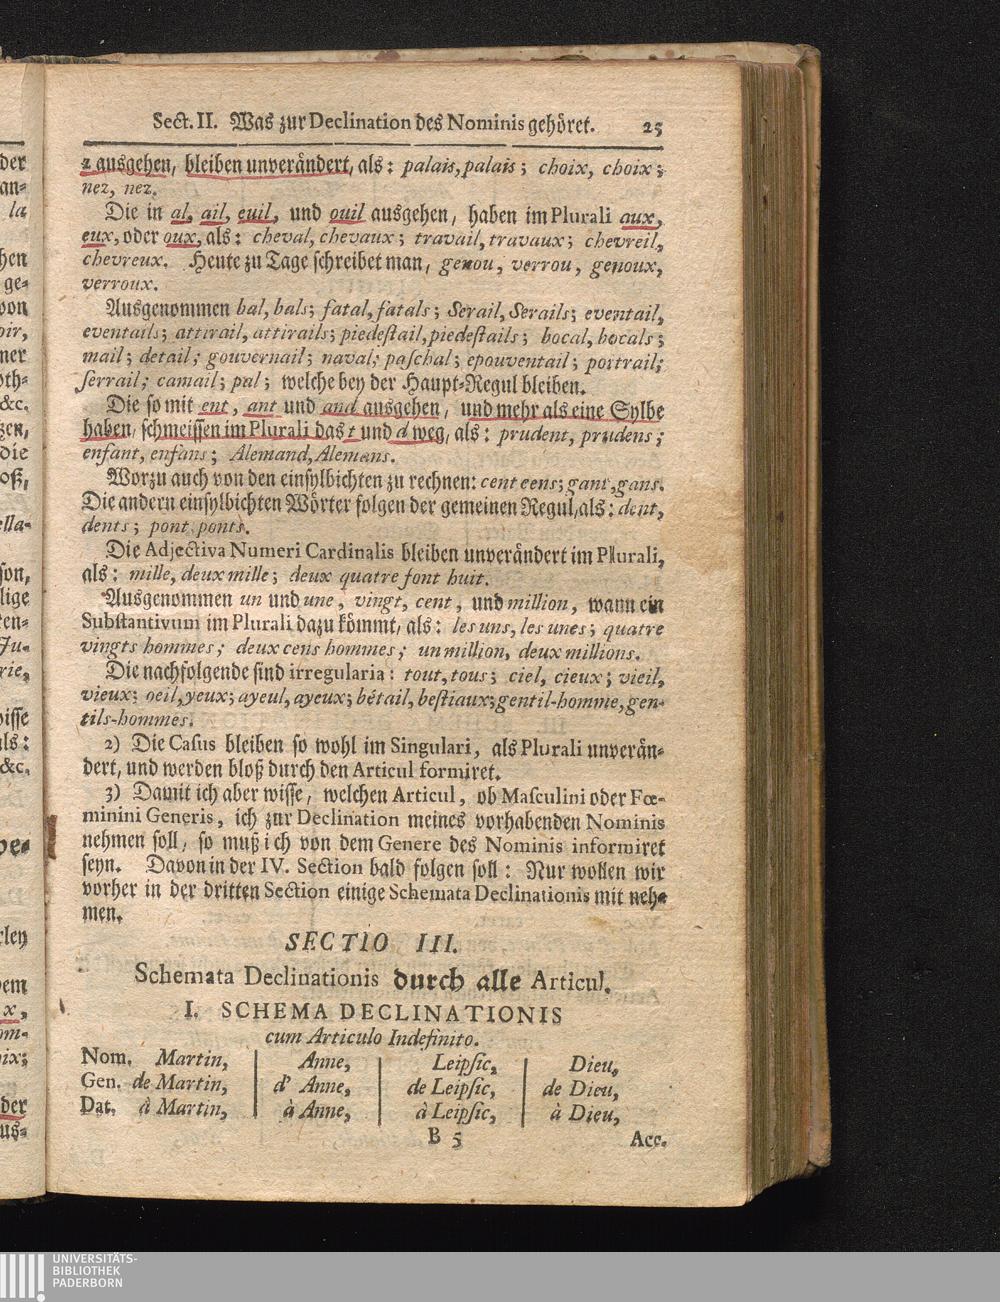 Sect. II. Was zur Declination des Nominis gehöret. 25
z ausgehen, bleiben unverändert, als: palais, palais; choix, choix;
nez, nez.
Die in al, ail, euil, und ouil ausgehen, haben im Plurali aux,
eux, oder oux, als: cheval, chevaux; travail, travaux; chevreil,
chevreux. Heute zu Tage schreibet man, genou, verrou, genoux,
verroux.
Ausgenommen bal, bals; fatal, fatals; Serail, Serails; eventail,
eventails; attirail, attirails; piedestail, piedestails; bocal, bocals;
mail; detail; gouvernail; naval; paschal; epouventail; portrail;
serrail; camail; pal; welche bey der Haupt-Regul bleiben.
Die so mit ent, ant und and ausgehen, und mehr als eine Sylbe
haben, schmeissen im Plurali das t und d weg, als: prudent, prudens;
enfant, enfans; Alemand, Alemans.
Worzu auch von den einsylbichten zu rechnen: cent cens; gant, gans.
Die andern einsylbichten Wörter folgen der gemeinen Regul, als: dent,
dents; pont, ponts.
Die Adjectiva Numeri Cardinalis bleiben unverändert im Plurali,
als: mille, deux mille; deux quatre font huit.
Ausgenommen un und une, vingt, cent, und million, wann ein
Substantivum im Plurali dazu kömmt, als: les uns, les unes; quatre
vingts hommes; deux cens hommes; un million, deux millions.
Die nachfolgende sind irregularia: tout, tous; ciel, cieux; vieil,
vieux; oeil, yeux; ayeul, ayeux; bétail, bestiaux; gentil-homme, gen-
tils-hommes.
2) Die Casus bleiben so wohl im Singulari, als Plurali unverän-
dert, und werden bloß durch den Articul formiret.
3) Damit ich aber wisse, welchen Articul, ob Masculini oder Fœ-
minini Generis, ich zur Declination meines vorhabenden Nominis
nehmen soll, so muß ich von dem Genere des Nominis informiret
seyn. Davon in der IV. Section bald folgen soll: Nur wollen wir
vorher in der dritten Section einige Schemata Declinationis mit neh-
men.
SECTIO III.
Schemata Declinationis durch alle Articul.
I. SCHEMA DECLINATIONIS
cum Articulo Indefinito.
Nom. Martin, Anne, Leipsic, Dieu,
Gen. de Martin, d' Anne, de Leipsic, de Dieu,
Dat. à Martin, à Anne, à Leipsic, à Dieu,
B 5 Acc.
UNIVERSITÄTS-
BIBLIOTHEK
PADERBORN